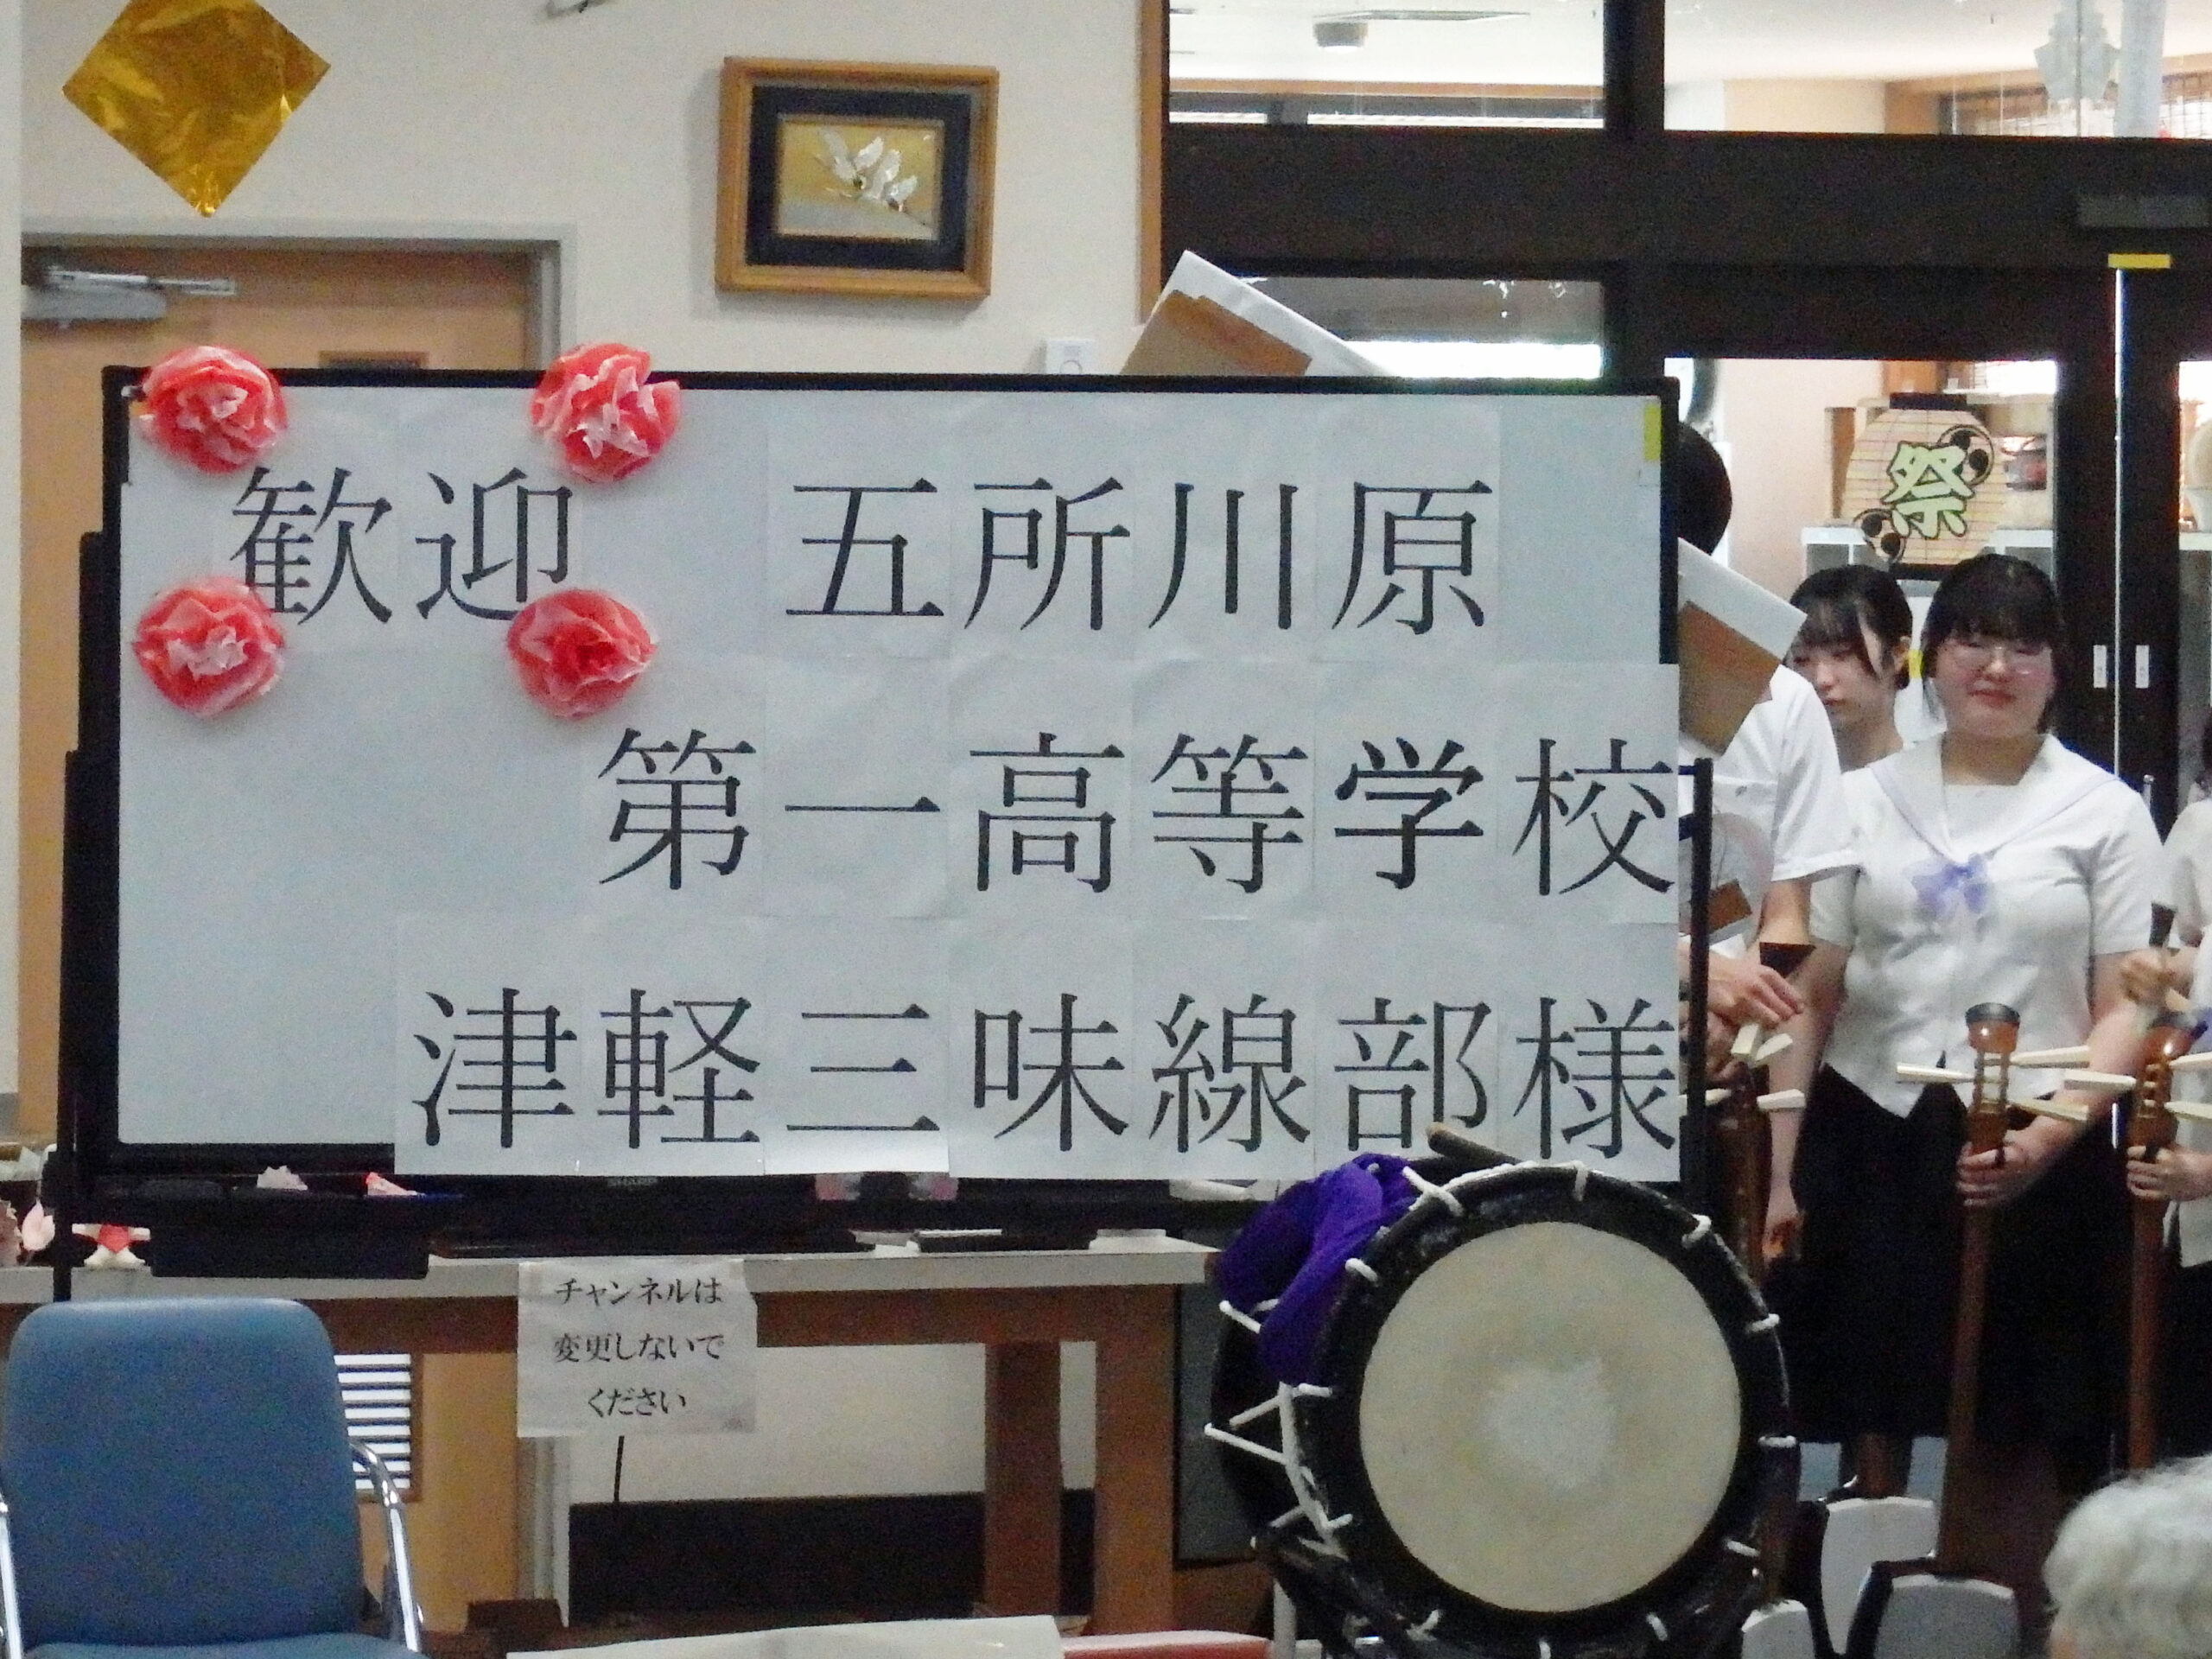 歓迎 五所川原
第一高等学校
津軽三味線部様
祭
SHARP
チャンネルは
変更しないで
ください